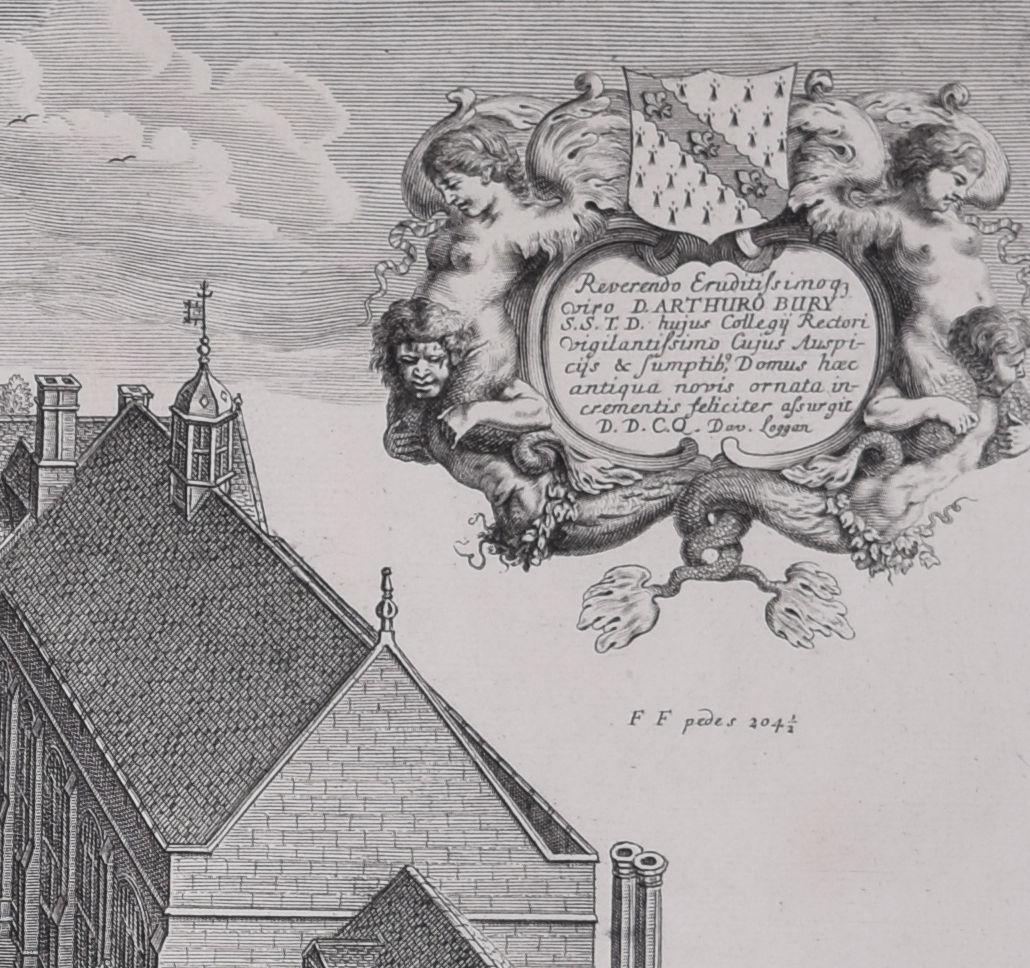 Reverendo Eruditiſsimoqꝫ
viro D. ARTHURO BURY
S. S. T. D. hujus Collegij Rectori
vigilantiſsimo Cujus Auspi-
cijs & ſumptibꝰ Domus hæc
antiqua novis ornata in-
crementis feliciter aſsurgit
D. D. C. Q. Dav. Loggan
F F pedes 204½